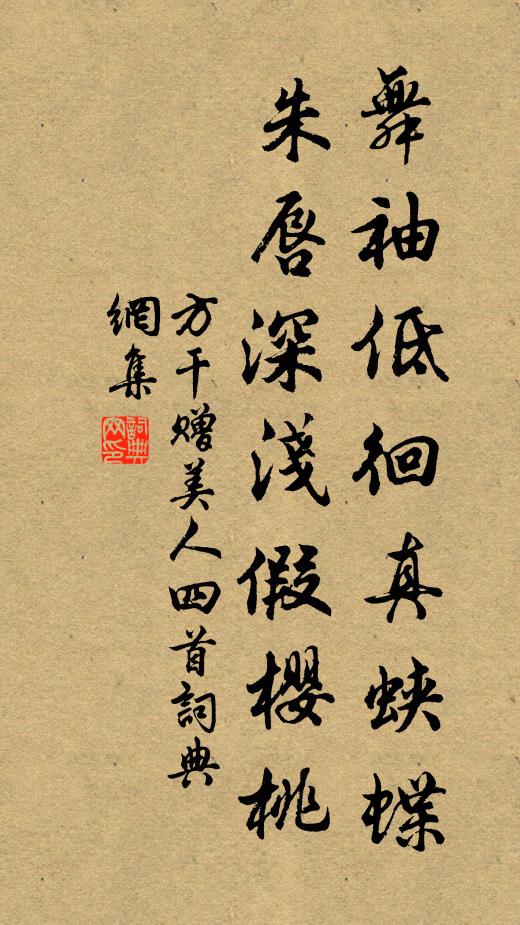 舞袖低徊真蛱蝶
朱唇深淺假櫻桃
方干赠美人四首詞典
網集
詞典網印